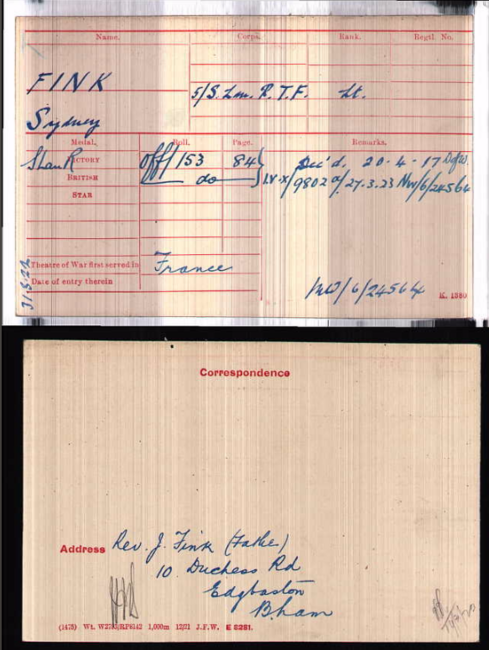 Name. Corps. Rank. Regtl. No.
FINK 5/S. Lan. R. T.F. Lt.
Sydney
Medal. Roll. Page. Remarks.
VICTORY Off/153 84 Dec'd. 20.4.17
BRITISH do I.V.X/9802 27.3.23 NW/6/24564
STAR
Theatre of War first served in France
Date of entry therein
NW/6/24564
K. 1380
Correspondence
Address Rev. J. Fink (Father)
10 Duchess Rd
Edgbaston
B'ham
1,000m 12/21 J.F.W. E 8281.